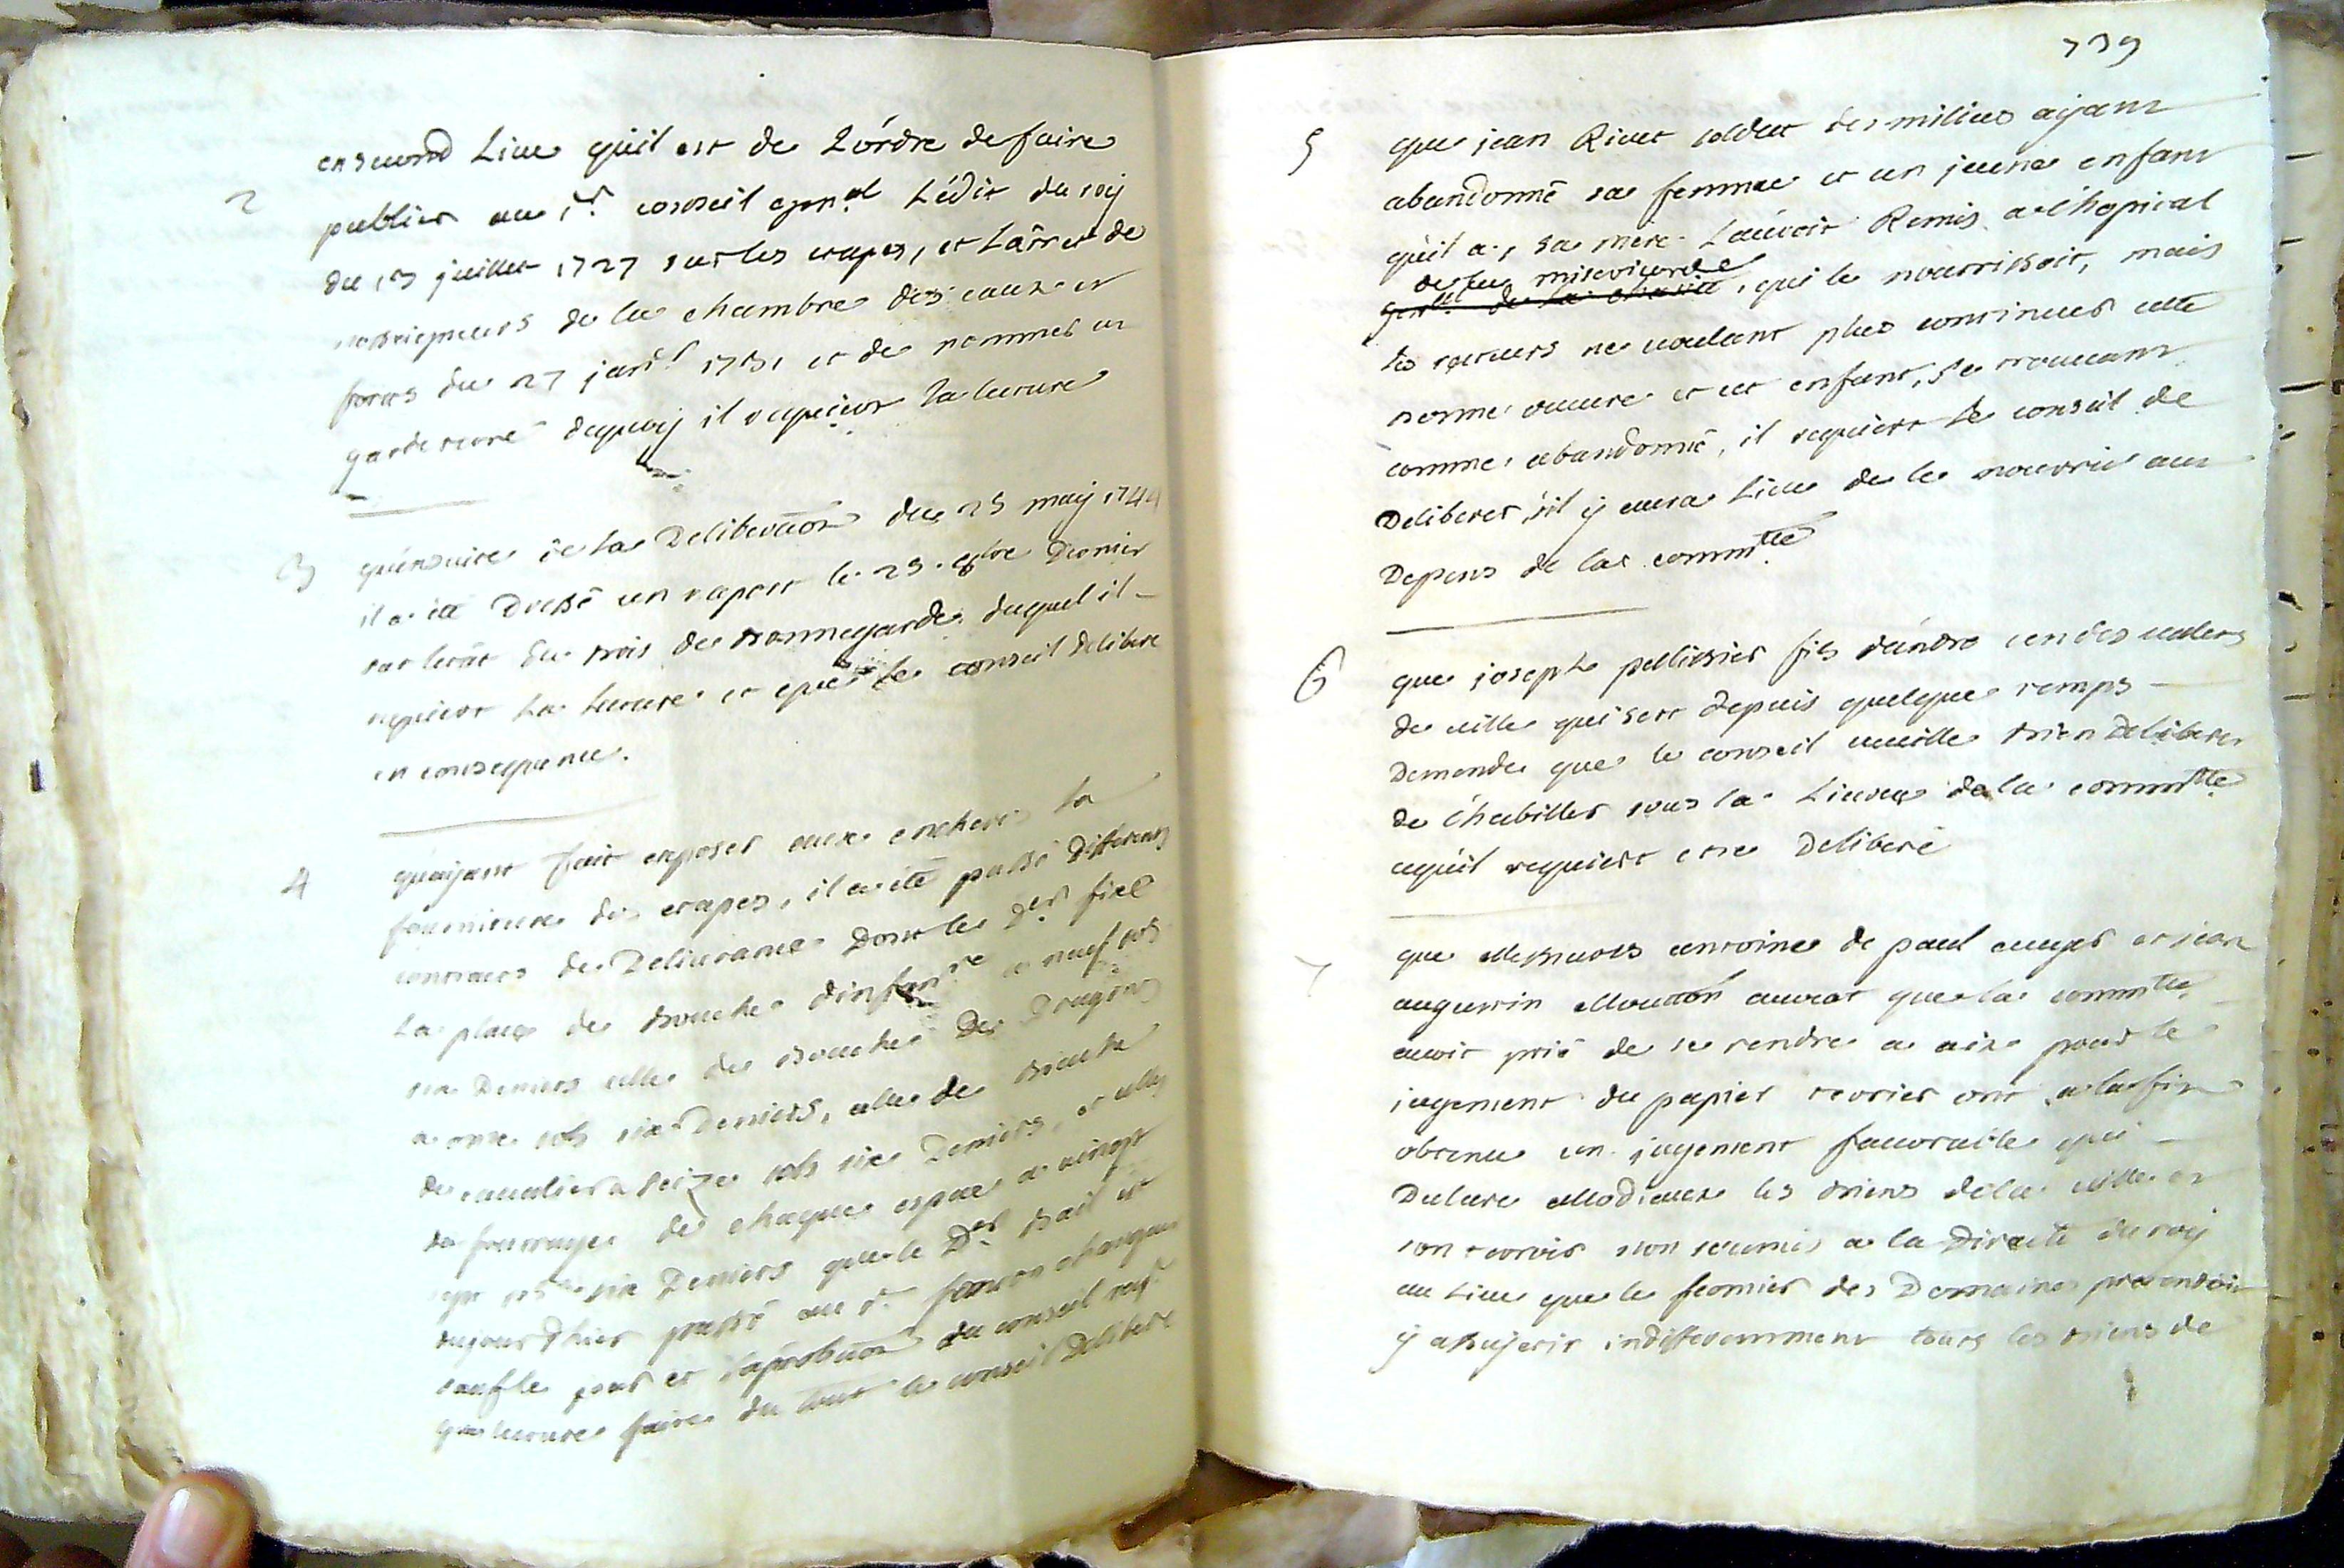 2 en second Lieu qu'il est de L'ordre de faire
publier au 1er. conseil gen.al L'édit du roy
du 13 juillet 1727 sur les etapes, et L'arret de
nosseigneurs de la chambre des eaux et
forets du 27 janv.r 1731 et de nommer un
garde terre dequoy il requiert la lecture
3 qu'ensuite de la Deliberaon du 25 may 1744
il a été Dressé un raport le 23. 9bre Dernier
sur letat du bois de bonnegarde duquel il
requiert la lecture et que le conseil delibere
en consequence.
4 qu'ayant fait exposer aux encheres la
fourniture des etapes, il a été passé Differents
contracts de Delivrance Dont le Der. fixe
La place de bouche d'infan.re a neuf sols
six Deniers celle de bouche Des Dragons
a onze sols six Deniers, celle de bouche
de cavaliers a seize sols six Deniers, et celle
de fourrage de chaque espece a vingt
sept sols six Deniers que le Der. bail est
du jour d'hier passé au sr.
sauf le et l'aprobaon du conseil
que lecture faire du tout le conseil Delibere
739
5 que jean Rivet soldat des milices ayant
abandonné sa femme et un jeune enfant
qu'il a, sa mere L'auroit Remis a l'hopital
de la misericorde
gen.al de la charité, qui le nourrissoit, mais
les recteurs ne voulant plus continuer cette
bonne oeuvre et cet enfant, se trouvant
comme abandonné, il requiert le conseil de
Deliberer, s'il y aura Lieu de le nourrir aux
Depens de la commtté
6 que joseph pellissier fils d'andré un des valets
de ville qui sert depuis quelque temps
Demande que le conseil veuille bien Deliberer
de l'habiller sous la Livrée de la commtté
a quil requiert etre Deliberé
7 que Messieurs antoine de paul et jean
augustin Mouton avocat que la commtté
avoit prié de se rendre a aix pour le
jugement du papier terrier ont a la fin
obtenu un jugement favorable qui
Declare allodiaux les biens de la ville et
son terroir non soumis a la Directe du roy
au Lieu que le fermier des Domaines pretendoit
y assujetir indifferemment tous les biens de